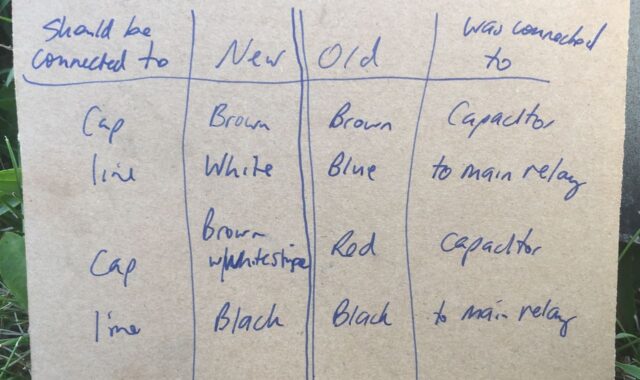 Should be connected to | New | Old | was connected to
Cap | Brown | Brown | Capacitor
line | White | Blue | to main relay
Cap | Brown w/white stripe | Red | capacitor
line | Black | Black | to main relay